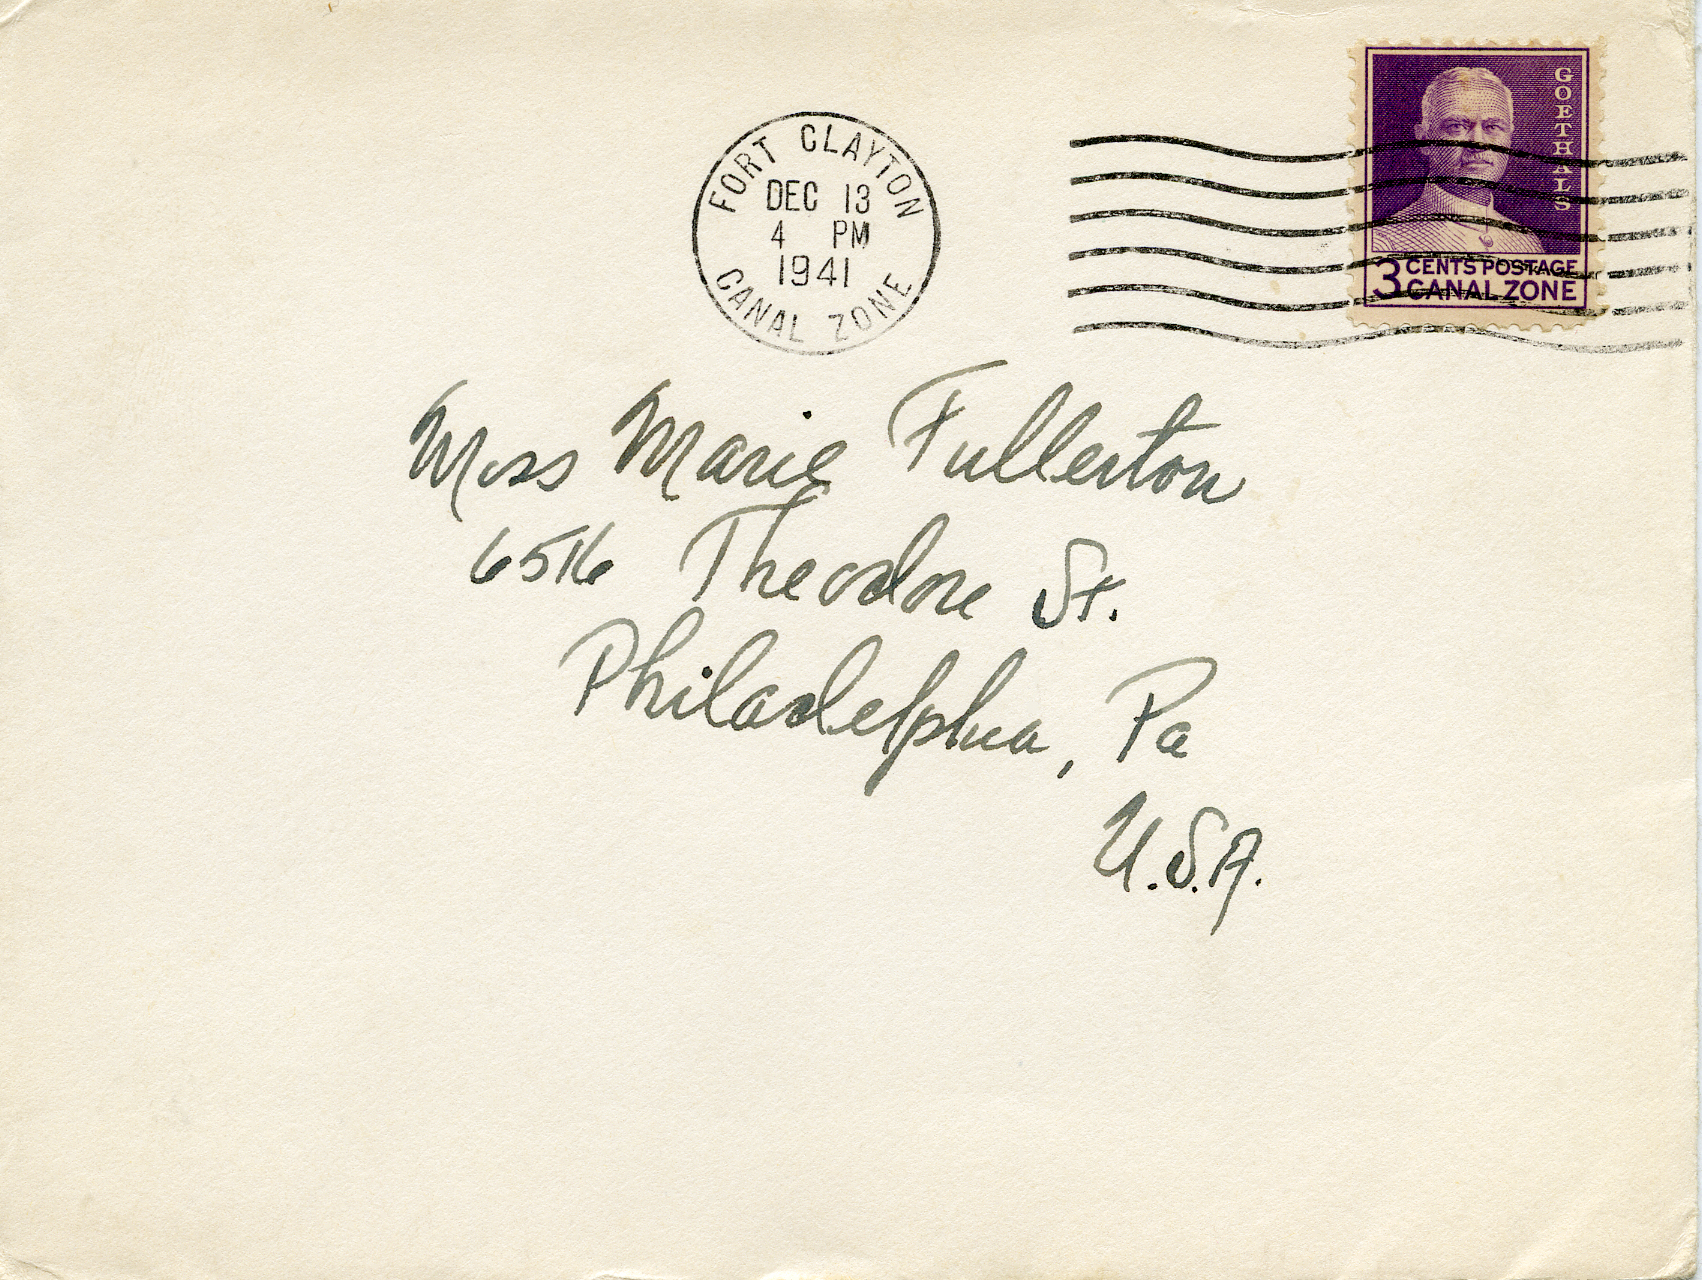 FORT CLAYTON
DEC 13
4 PM
1941
CANAL ZONE
GOETHALS
3 CENTS POSTAGE
CANAL ZONE
Miss Marie Fullerton
6516 Theodore St.
Philadelphia, Pa
U.S.A.